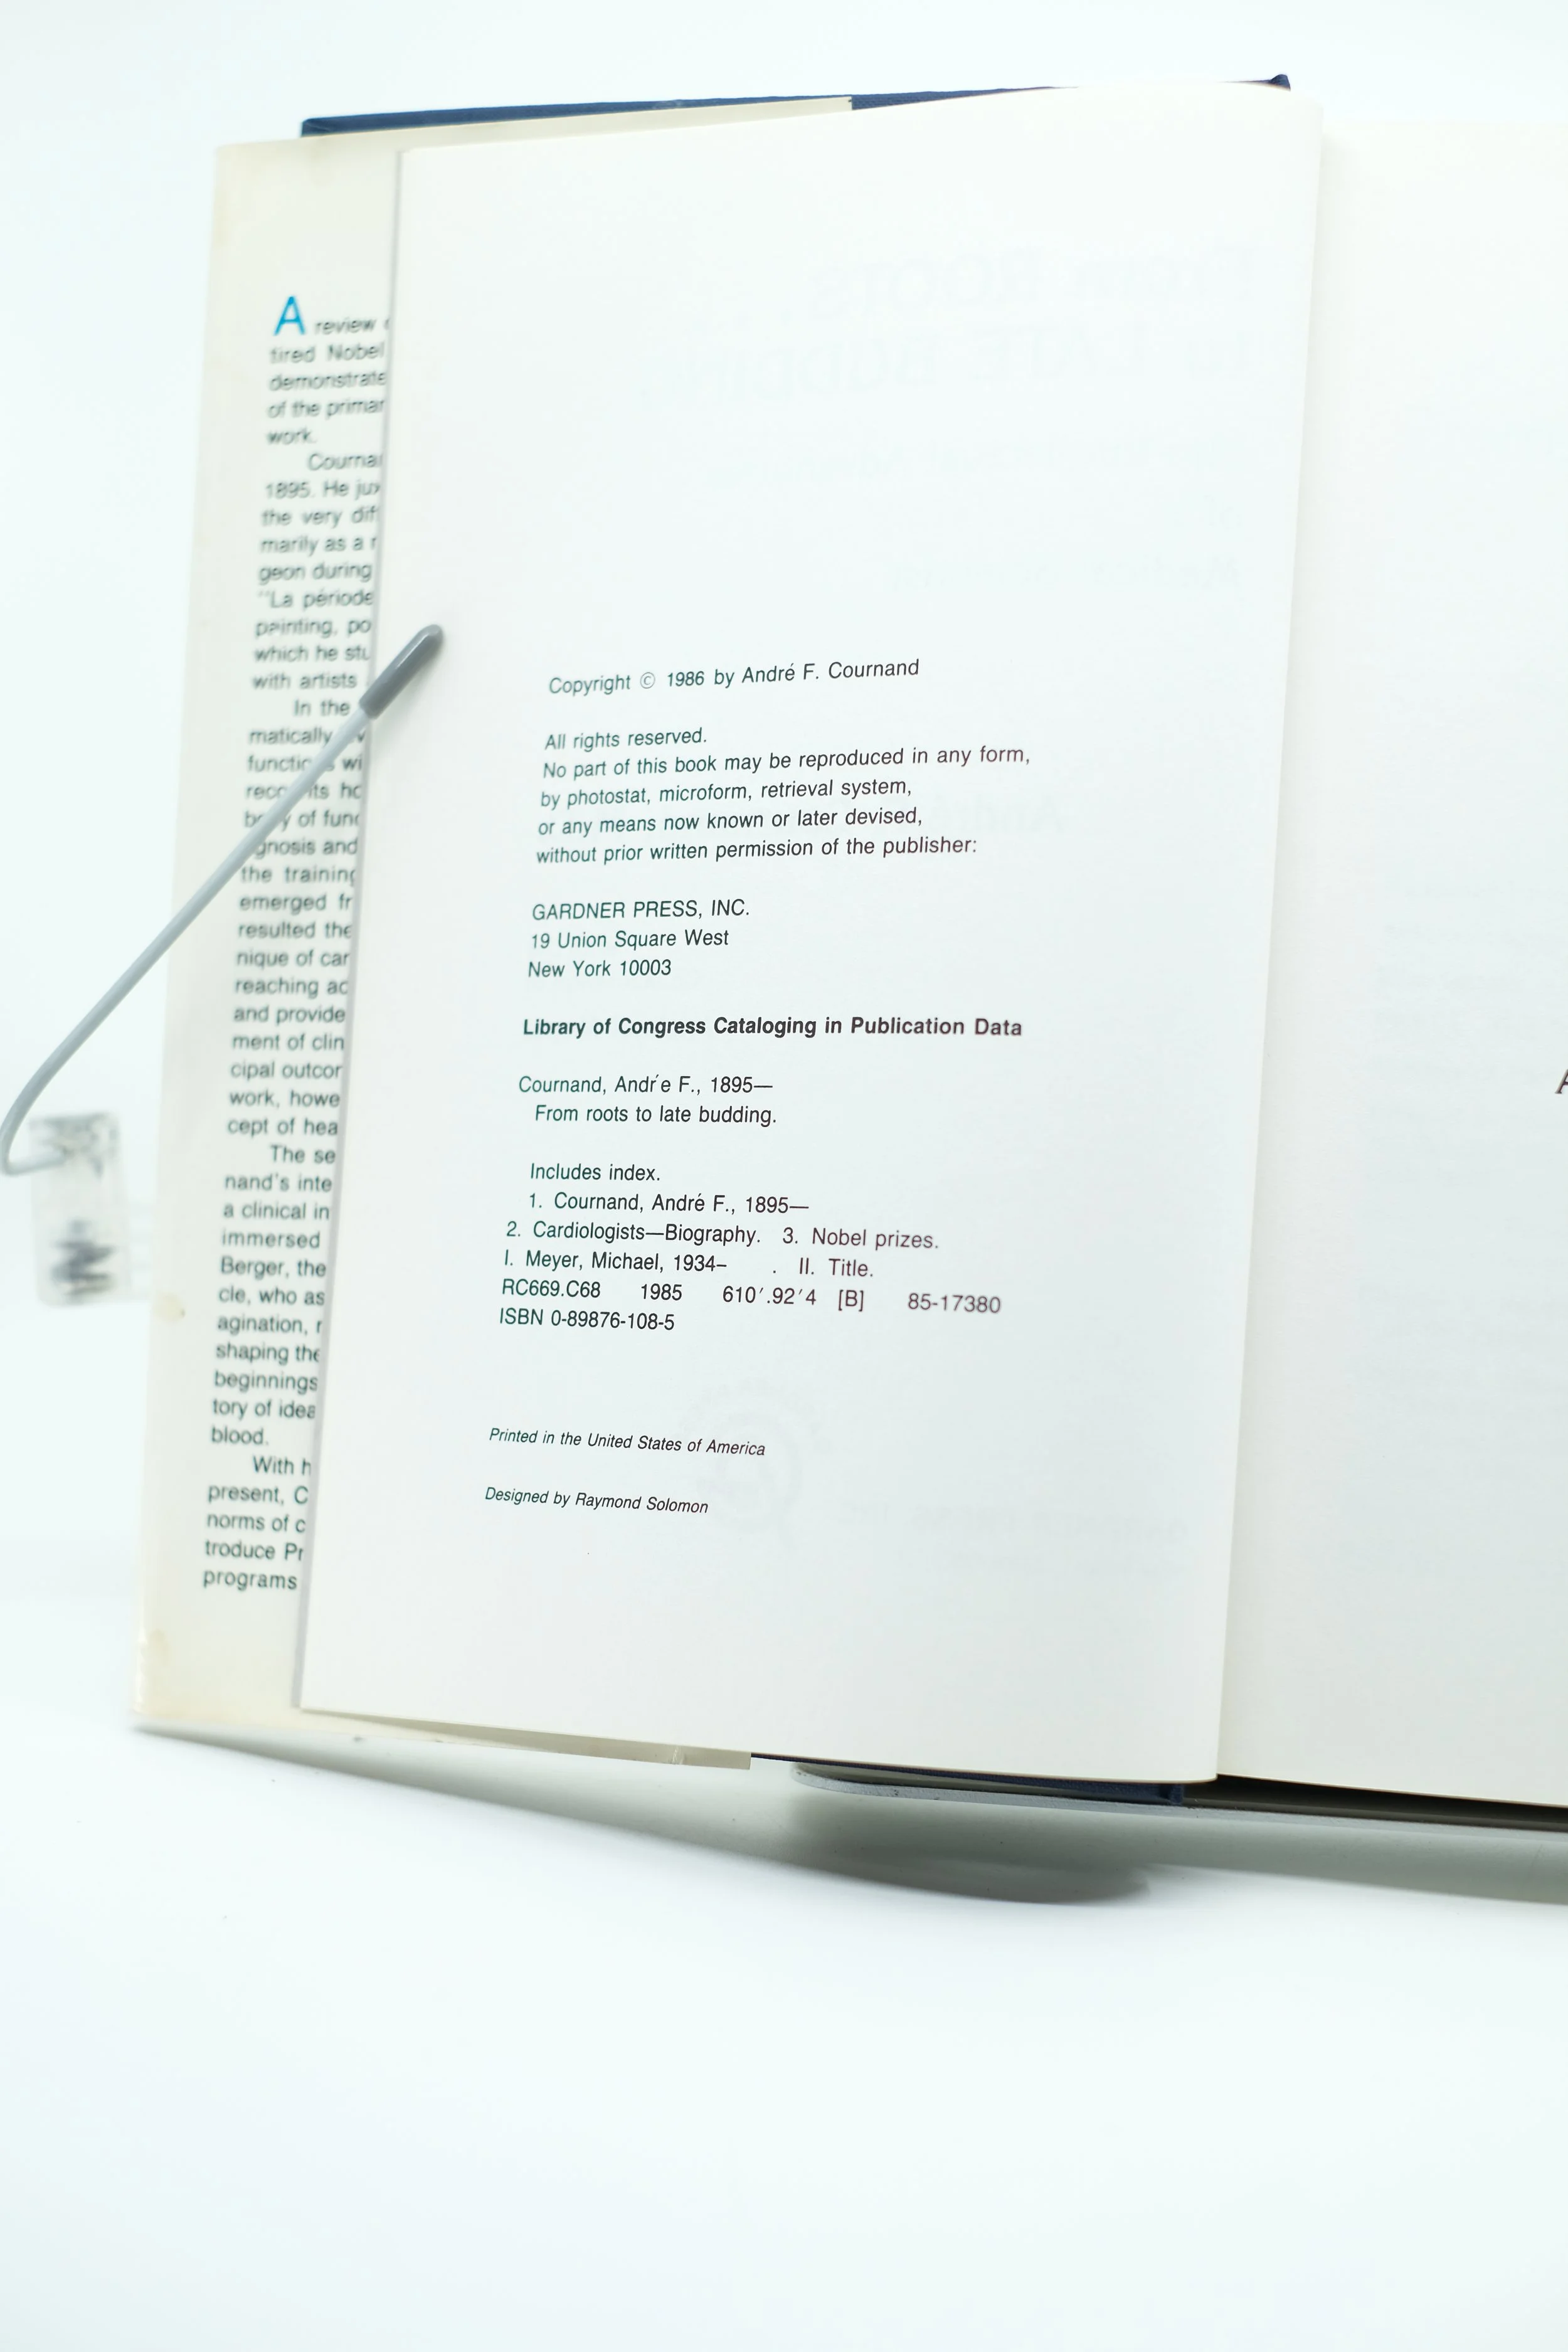 A review
tired Nobel
demonstrate
of the primar
work.
Cournar
1895. He jux
the very dif
marily as a r
geon during
"La période
painting, po
which he stu
with artists
In the
matically
wi
its ho
of func
gnosis and
the training
emerged fr
resulted the
nique of car
reaching ac
and provide
ment of clin
cipal outcor
work, howe
cept of hea
The se
nand's inte
a clinical in
immersed
Berger, the
cle, who as
agination, r
shaping the
beginnings
tory of idea
blood.
With h
present, C
norms of c
troduce Pr
programs
Copyright © 1986 by André F. Cournand
All rights reserved.
No part of this book may be reproduced in any form,
by photostat, microform, retrieval system,
or any means now known or later devised,
without prior written permission of the publisher:
GARDNER PRESS, INC.
19 Union Square West
New York 10003
Library of Congress Cataloging in Publication Data
Cournand, Andŕe F., 1895—
From roots to late budding.
Includes index.
1. Cournand, André F., 1895—
2. Cardiologists—Biography. 3. Nobel prizes.
I. Meyer, Michael, 1934– . II. Title.
RC669.C68 1985 610′.92′4 [B] 85-17380
ISBN 0-89876-108-5
Printed in the United States of America
Designed by Raymond Solomon